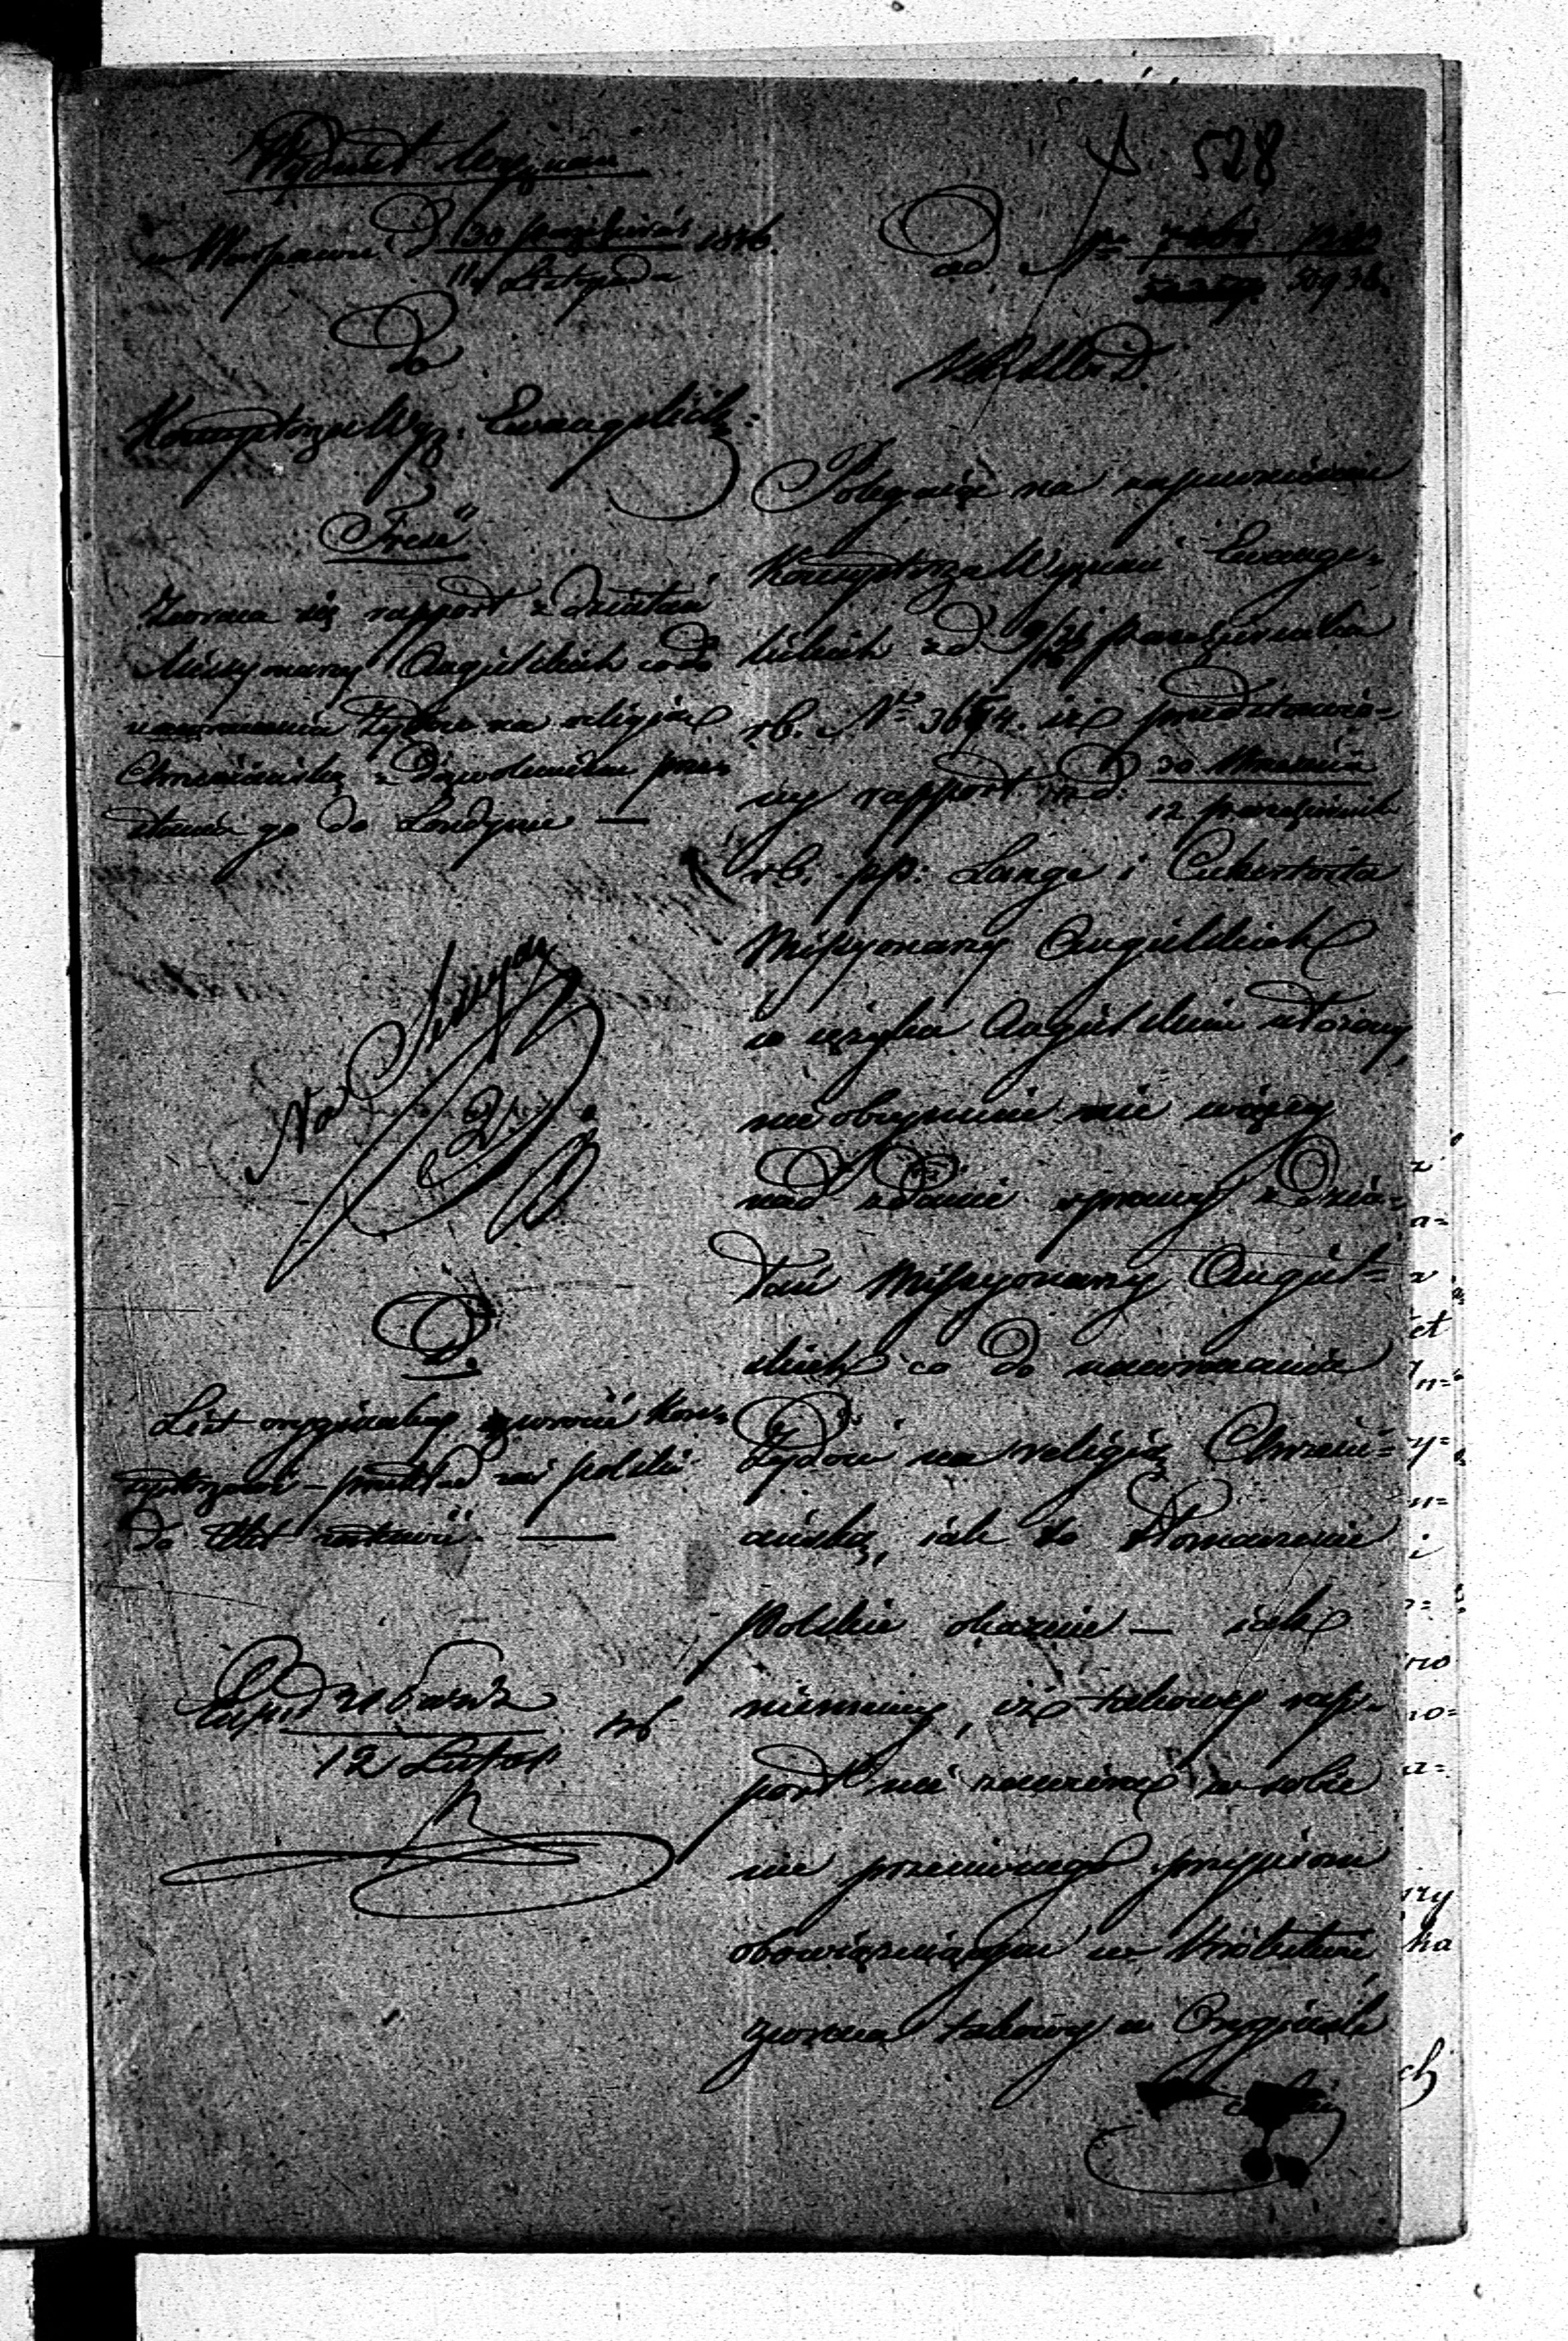 Wydział Wyznań
w Warszawie D 30 października 1846.
11 Listopada
Do
Konsystorza Wyz: Ewangelick:
Treść
Zwraca się rapport z działań
Missyonarzy Angielskich co do
nawracania Żydów na religią
Chrześciańską z dozwoleniem prze-
słania go do Londynu —
Na
D.
List oryginalny zwrócić Kon-
systorzowi — przekład zaś polski
do Akt zostawić —
12 Lutop
528
ad Nr
51936.
K.R.S.W.i D.
Polegając na zapewnieniu
Konsystorza Wyznań Ewange-
lickich z d 9/21 października
rb. No 3674. iż przedstawio-
ny rapport z d. 30 Września
12 październik
rb. pp: Lange i Cukertorta
Missyonarzy Angielskich
w języku Angielskim złożony,
nie obejmuje nic więcej
nad zdanie sprawy z dzia-
łań Missyonarzy Angiel-
skich co do nawracania
Żydów na religią Chrześci-
ańską, jak to tłomaczenie
polskie okazuie — iak
niemniey, iż takowy rap-
port nie zawiera w sobie
nic przeciwnego przepisom
obowiązuiącym w Królestwie,
zwraca takowy w Oryginale